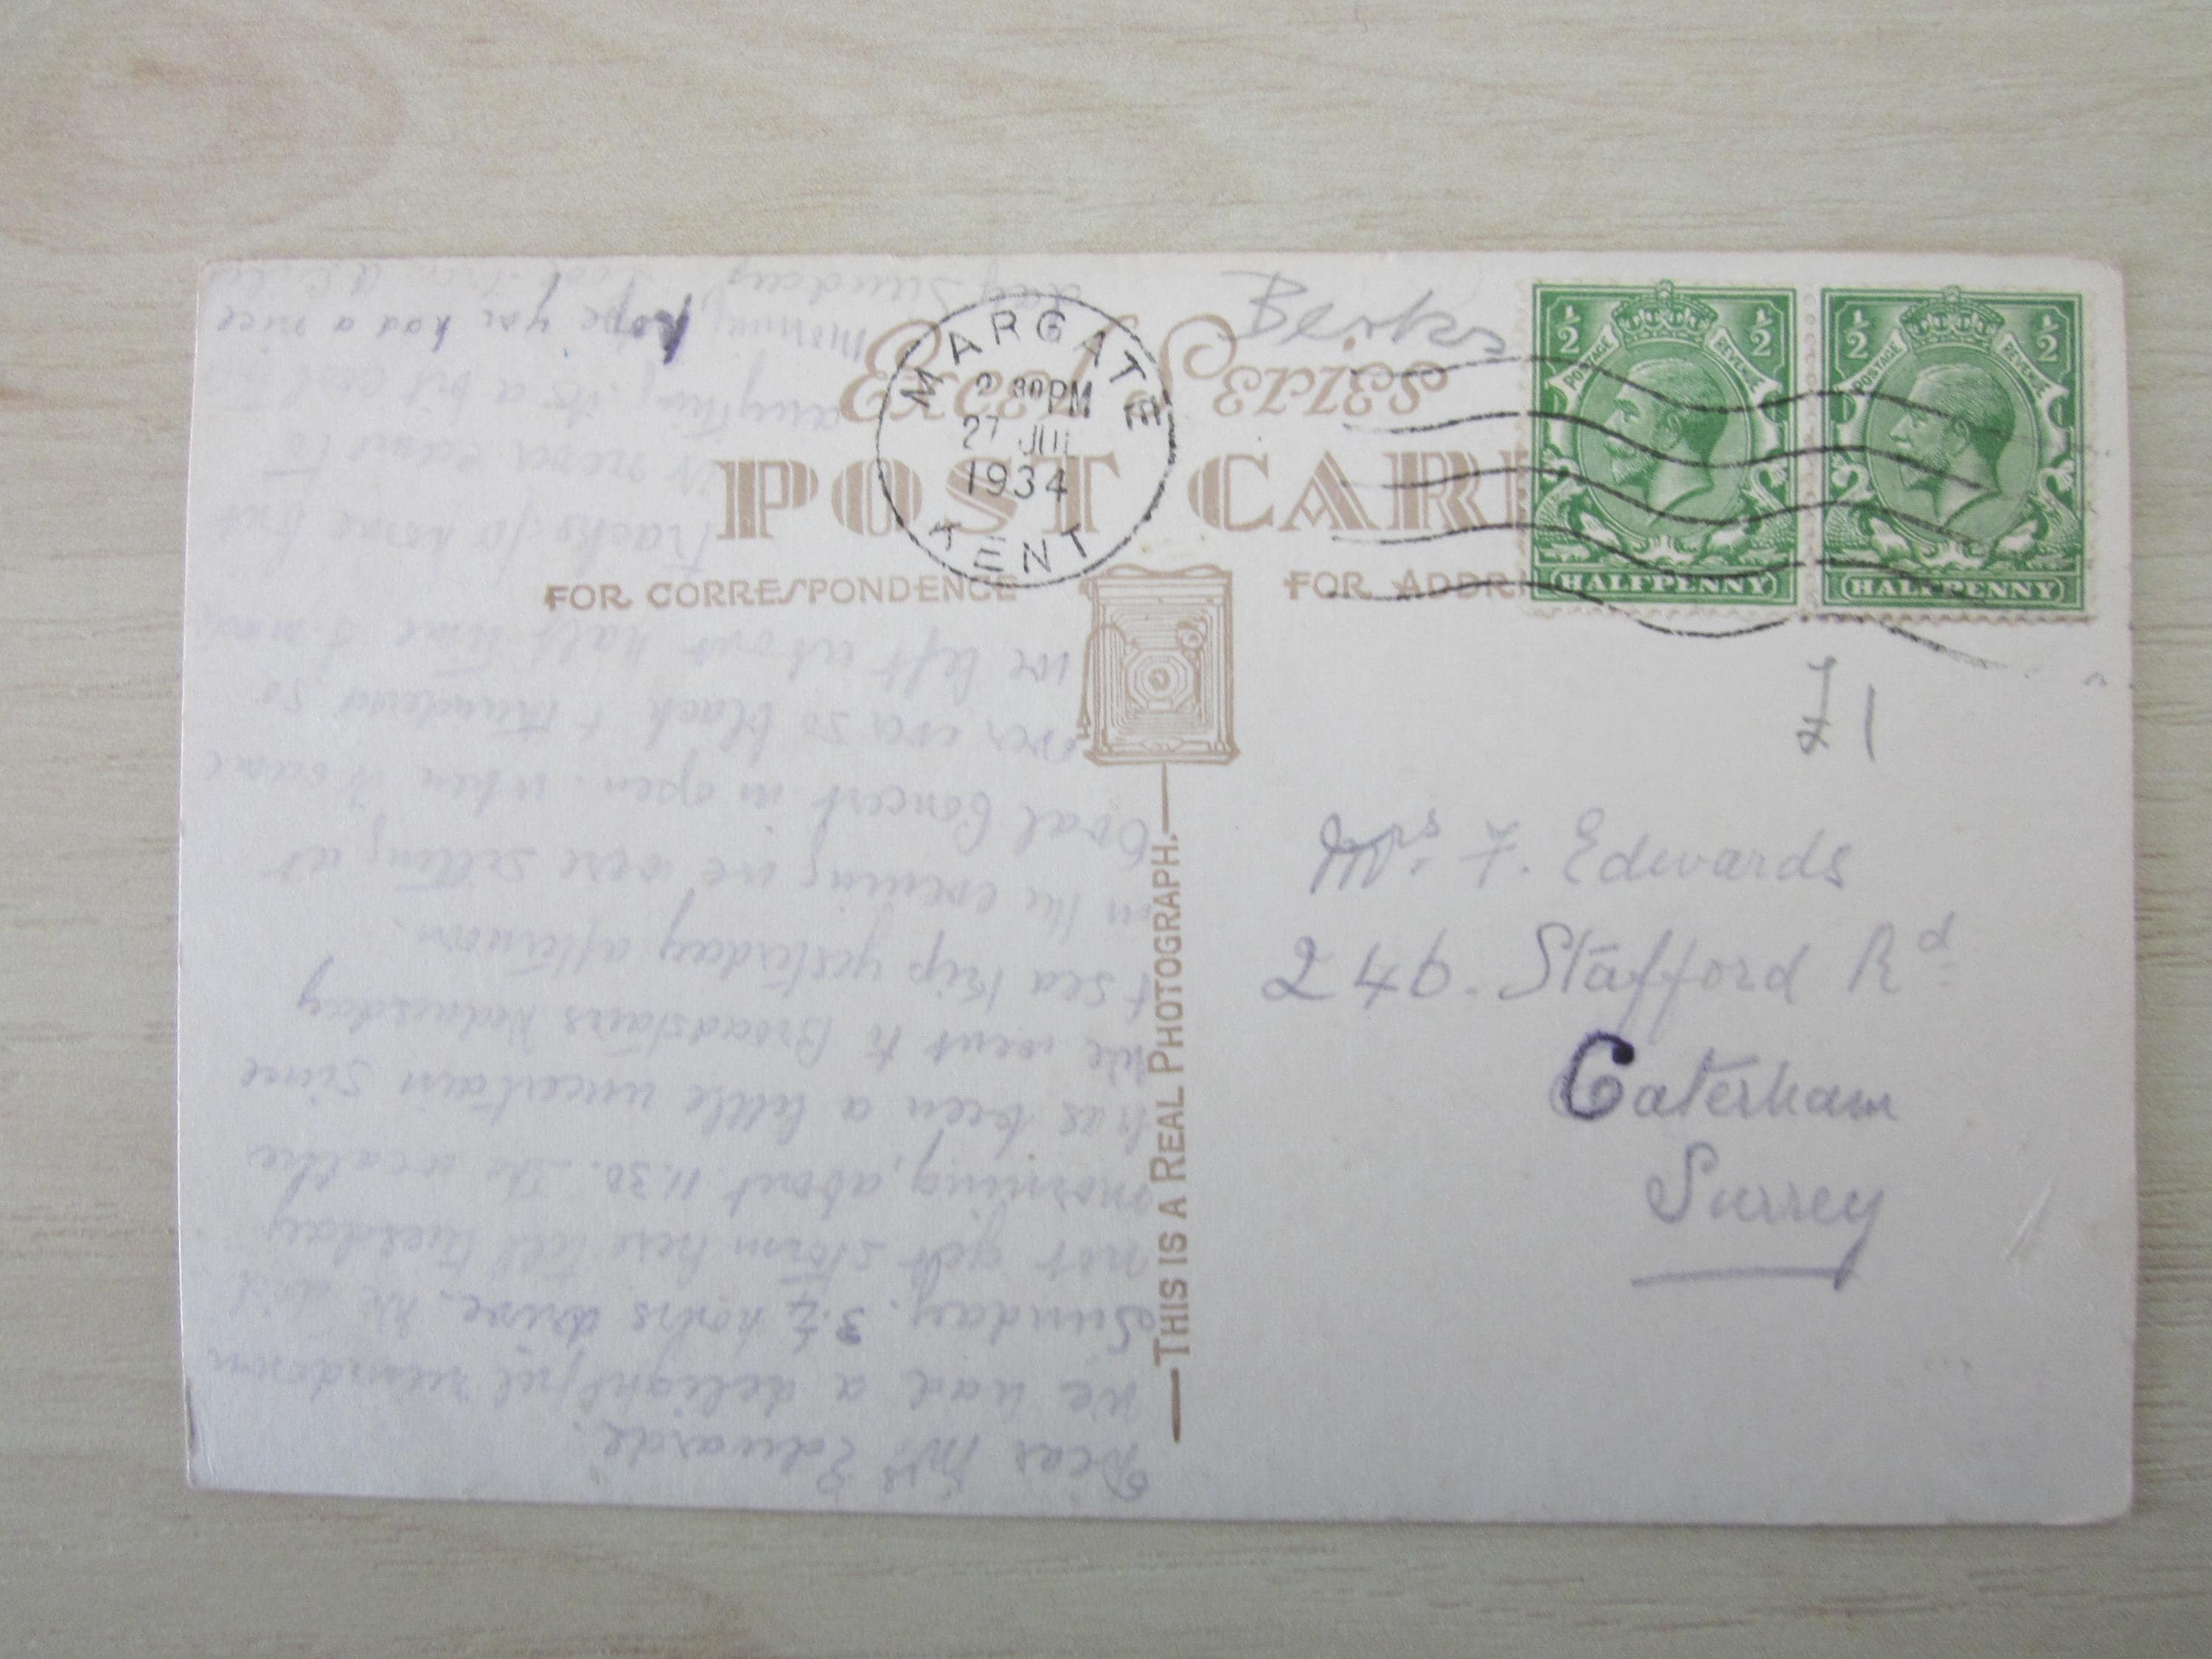 Berks
Excel Series
POST CAR
FOR CORRESPONDENCE
FOR ADDR
MARGATE
2 30 PM
27 JUL
1934
KENT
½ ½
POSTAGE REVENUE
HALFPENNY
½ ½
POSTAGE REVENUE
HALFPENNY
£1
Mrs. F. Edwards
246. Stafford Rd
Caterham
Surrey
THIS IS A REAL PHOTOGRAPH.
Dear Mrs Edwards.
We had a delightful run down
Sunday. 3¼ hours drive. We did
not get storm here till Tuesday
morning, about 11.30. The weather
has been a little uncertain since
We went to Broadstairs Wednesday
& sea trip yesterday afternoon.
in the evening we were sitting at
Oval Concert in open. when it came
over ever so black & thundered so
we left about half time & made
tracks for home but
it never came to
anything, its a bit cool this
morning, hope you had a nice
day Sunday